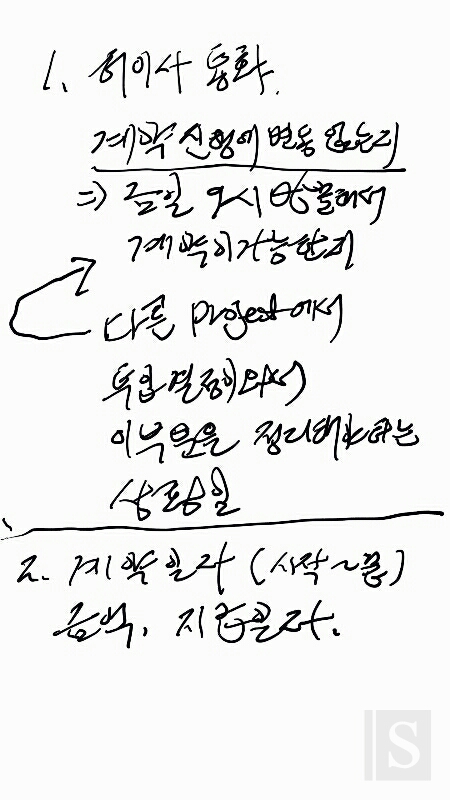 1. 허이사 통화.
계약 진행에 변동 없는지
=> 금일 9시 방문해서
계약이 가능한지
다른 project에서
투입결정이 와서
이부분을 정리해야하는
상황임
2. 계약일자 (시작~끝)
금액, 지급일자.
S